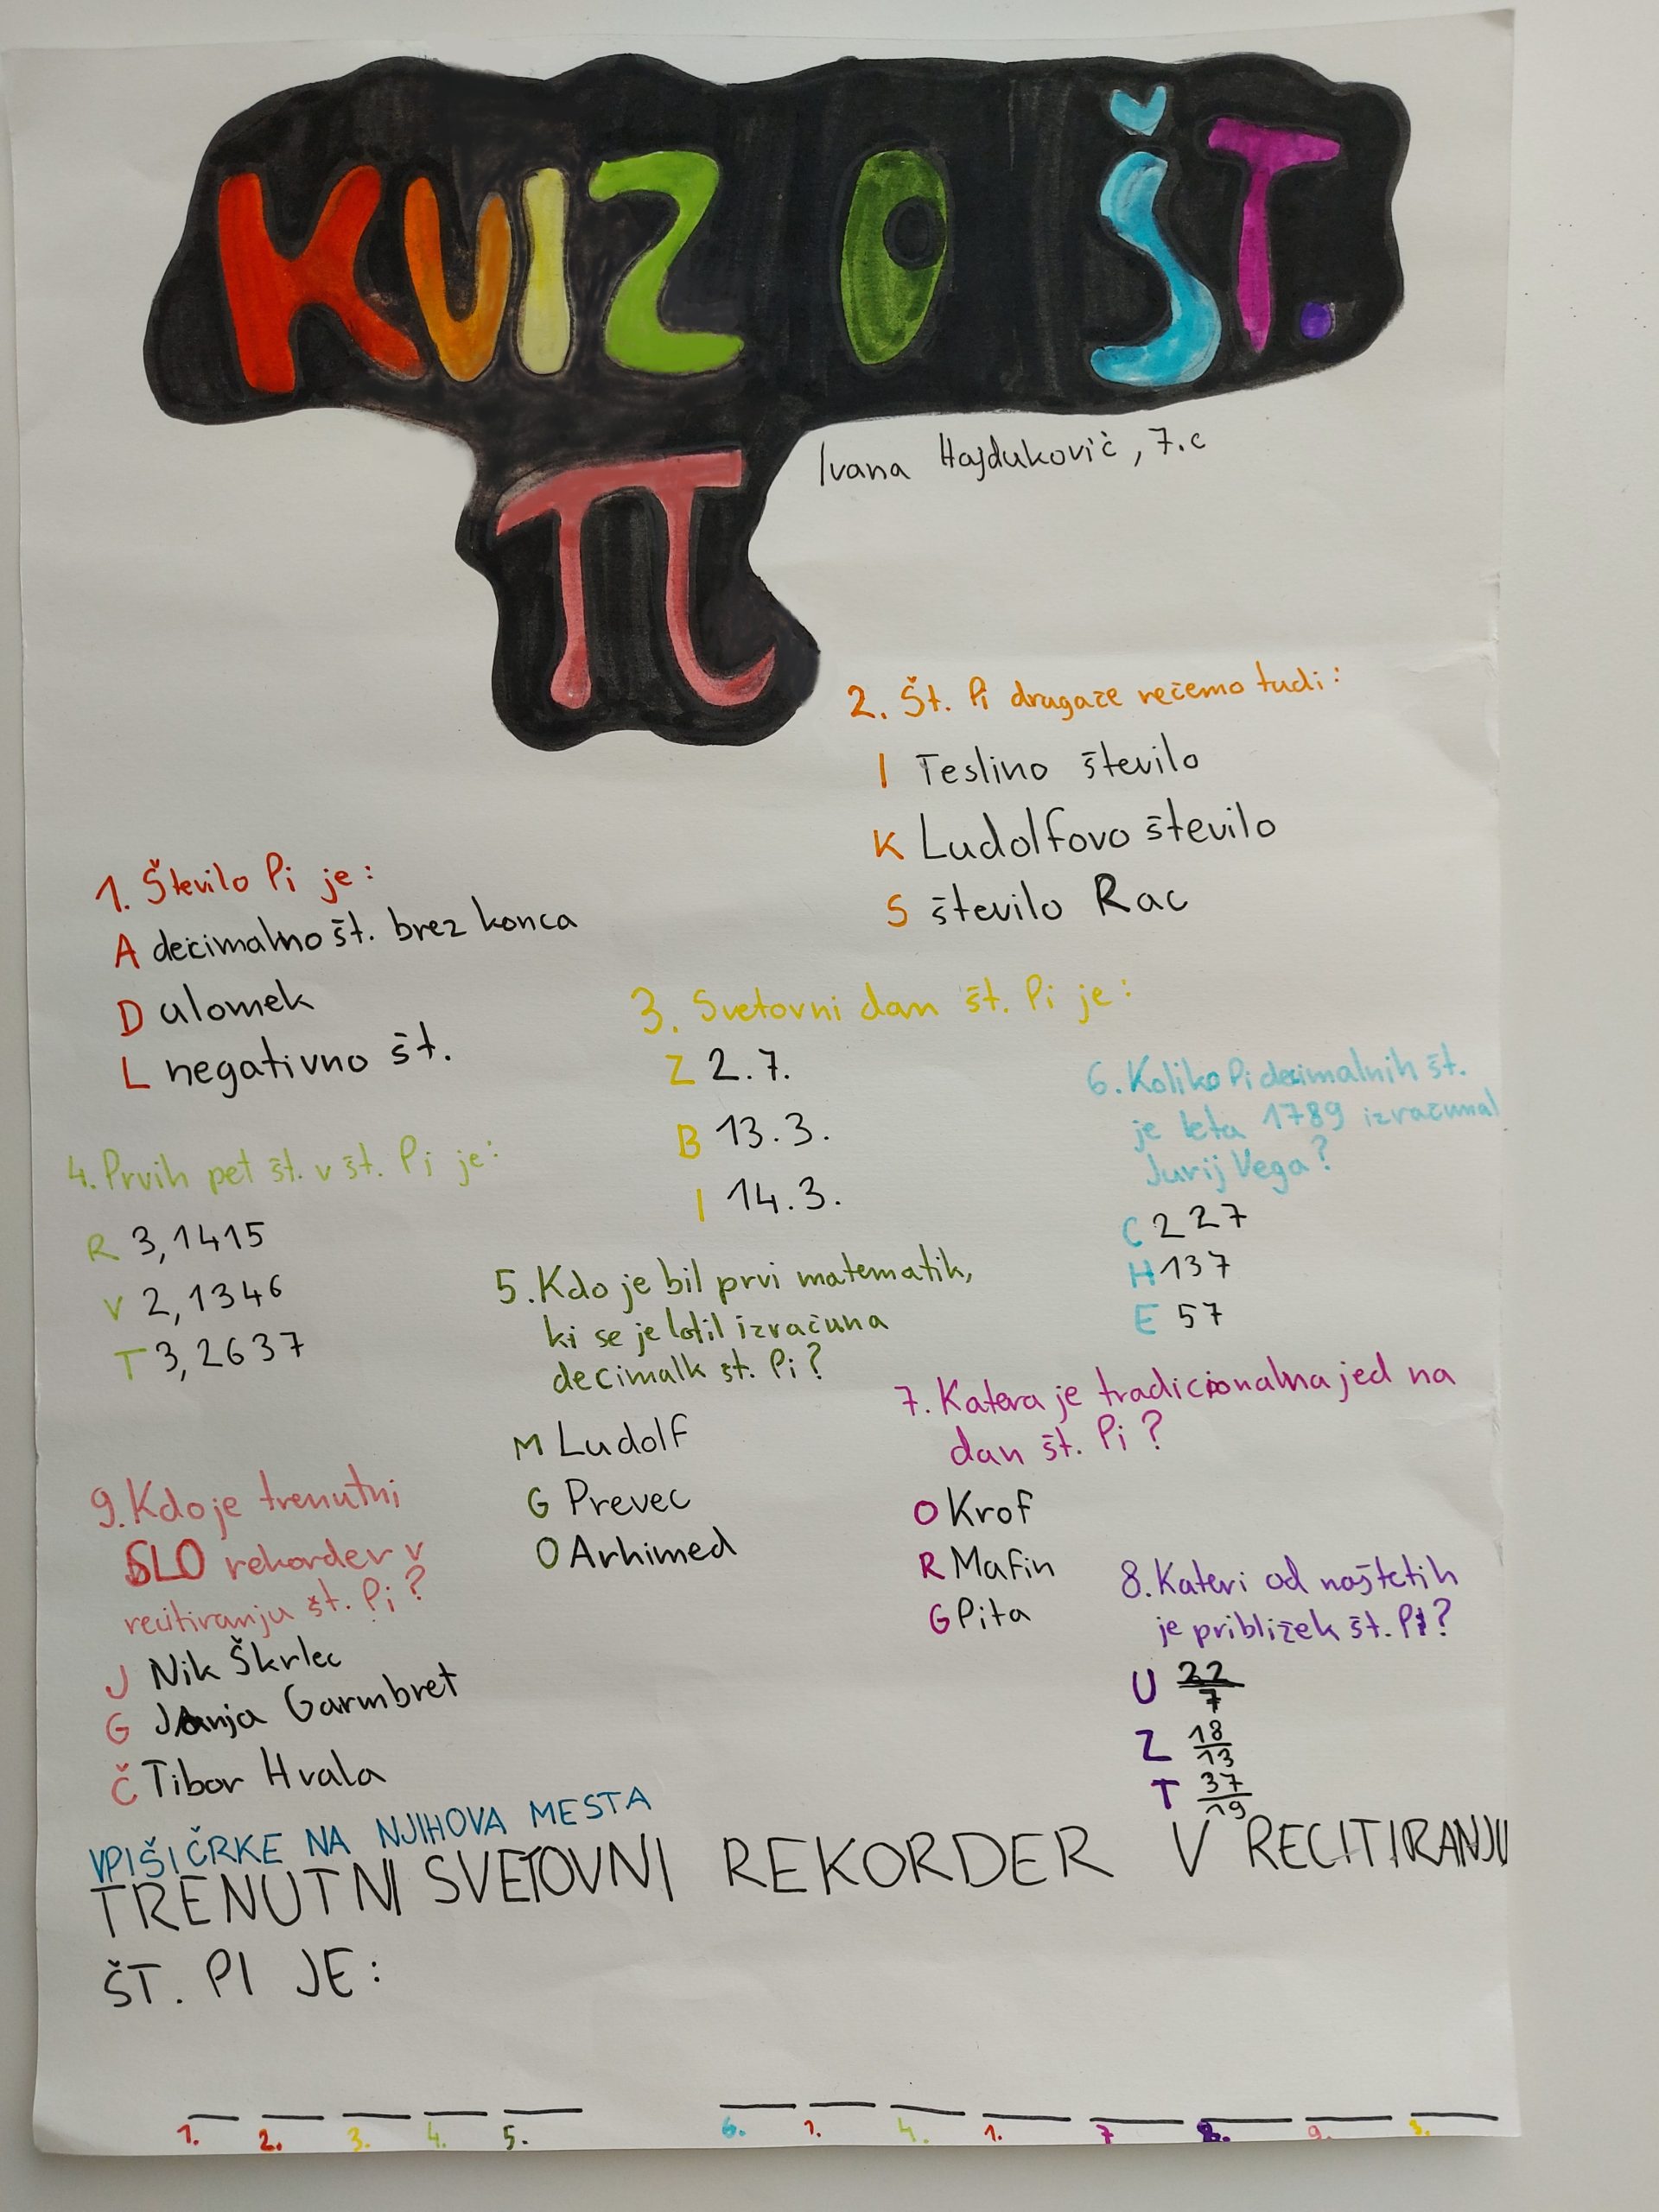 KVIZ O ŠT.
π
Ivana Hajduković, 7.c
1. Število Pi je:
A decimalno št. brez konca
D ulomek
L negativno št.
2. Št. Pi drugače rečemo tudi:
I Teslino število
K Ludolfovo število
S število Rac
3. Svetovni dan št. Pi je:
Z 2.7.
B 13.3.
I 14.3.
4. Prvih pet št. v št. Pi je:
R 3,1415
V 2,1346
T 3,2637
5. Kdo je bil prvi matematik,
ki se je lotil izračuna
decimalk št. Pi?
M Ludolf
G Prevec
O Arhimed
6. Koliko Pi decimalnih št.
je leta 1789 izračunal
Jurij Vega?
C 227
H 137
E 57
7. Katera je tradicionalna jed na
dan št. Pi?
O Krof
R Mafin
G Pita
8. Kateri od naštetih
je približek št. Pi?
U 22/7
Z 18/13
T 37/19
9. Kdo je trenutni
SLO rekorder v
recitiranju št. Pi?
J Nik Škrlec
G Janja Garmbret
Č Tibor Hvala
VPIŠI ČRKE NA NJIHOVA MESTA
TRENUTNI SVETOVNI REKORDER V RECITIRANJU
ŠT. PI JE:
1. 2. 3. 4. 5. 6. 1. 4. 1. 7 8. 9. 3.